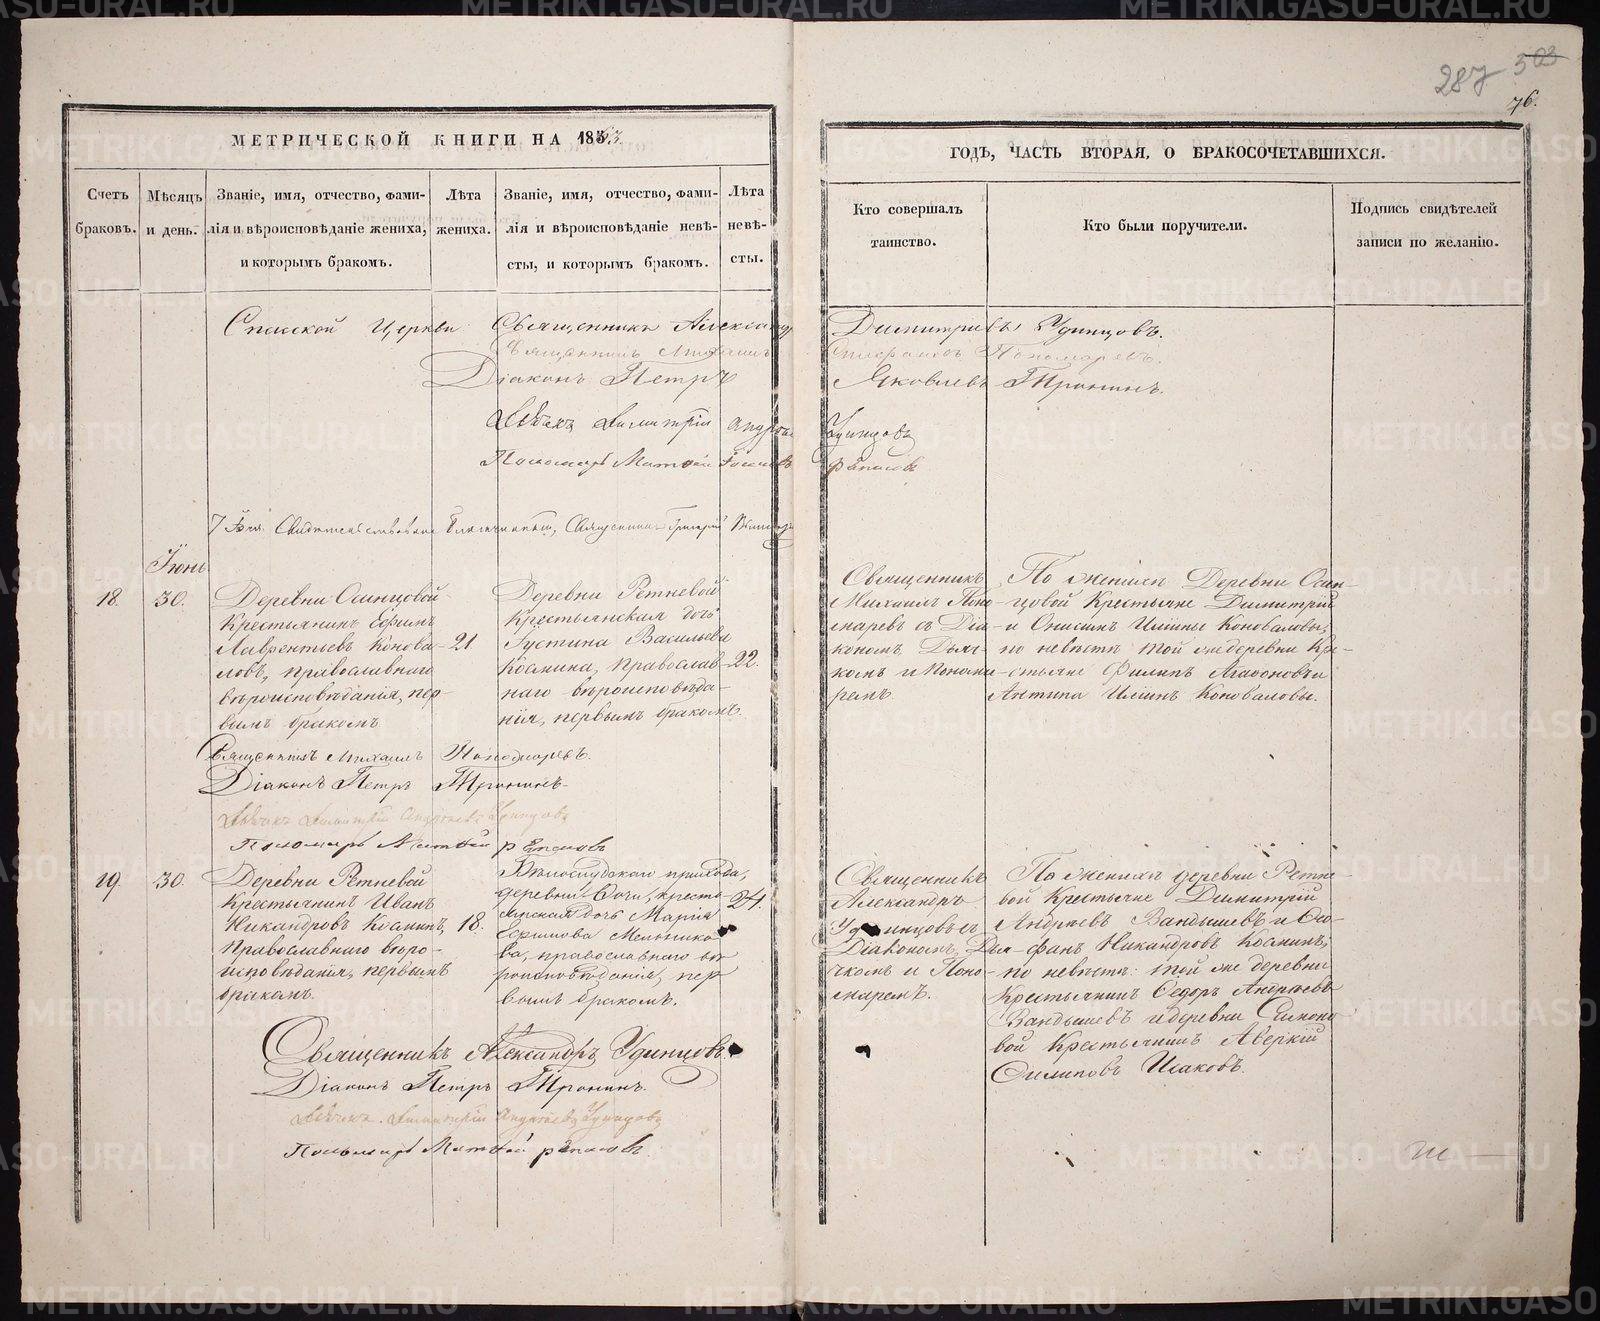 287 503
76.
МЕТРИЧЕСКОЙ КНИГИ НА 1863.
ГОДЪ, ЧАСТЬ ВТОРАЯ, О БРАКОСОЧЕТАВШИХСЯ.
Счетъ браковъ.
Мѣсяцъ и день.
Званіе, имя, отчество, фами-
лія и вѣроисповѣданіе жениха,
и которымъ бракомъ.
Лѣта
жениха.
Званіе, имя, отчество, фами-
лія и вѣроисповѣданіе невѣ-
сты, и которымъ бракомъ.
Лѣта
невѣ-
сты.
Кто совершалъ
таинство.
Кто были поручители.
Подпись свидѣтелей
записи по желанію.
Спасской Церкви Священникъ Александръ Димитріевъ Удинцовъ.
Священникъ Михаилъ Пономаревъ.
Діаконъ Петръ Яковлевъ Тронинъ.
Дьячекъ Димитрій Андреевъ Удинцовъ
Пономарь Матвей рѣпиовъ
Священникъ Григорій
Іюнь
18.
30.
Деревни Осинцовой
Крестьянинъ Ефимъ
Лаврентьевъ Конова-
ловъ, православнаго
вѣроисповѣданія, пер-
вымъ бракомъ
21.
Деревни Ретневой
Крестьянская дочь
Густина Васильева
Косинина, Православ-
наго вѣроисповѣда-
нія, первымъ бракомъ.
22.
Священникъ
Михаилъ Поно-
маревъ съ Діа-
кономъ Дьяч-
комъ и Понома-
ремъ.
По женихѣ Деревни Осин-
цовой Крестьяне Димитрій
и Онисимъ Ильины Коноваловы;
по невѣстѣ той же деревни Кре-
стьяне Филипъ Агафоновъ и
Антипа Ильинъ Коноваловы.
Священникъ Михаилъ Пономаревъ.
Діаконъ Петръ Тронинъ.
Дьячекъ Димитрій Андреевъ Удинцовъ
Пономарь Матвей
19.
30.
Деревни Ретневой
Крестьянинъ Иванъ
Никандровъ Косининъ,
Православнаго вѣро-
исповѣданія, первымъ
бракомъ.
18.
Бѣлослудскаго прихода,
деревни крестья-
нская дочь Марія
Ефимова Мельнико-
ва, православнаго вѣ-
роисповѣданія, пер-
вымъ бракомъ.
24.
Священникъ
Александръ
Удинцовъ съ
Діакономъ, Дья-
чкомъ и Поно-
маремъ.
По женихѣ деревни Ретне-
вой Крестьяне Димитрій
Андреевъ Вандышевъ и Сте-
фанъ Никандровъ Косининъ;
по невѣстѣ: той же деревни
Крестьянинъ Федоръ Андреевъ
Вандышевъ и деревни Симоно-
вой Крестьянинъ Аверкій
Филиповъ Исаковъ.
Священникъ Александръ Удинцовъ.
Діаконъ Петръ Тронинъ.
Дьячекъ Димитрій Андреевъ Удинцовъ
Пономарь Матвей
METRIKI.GASO-URAL.RU